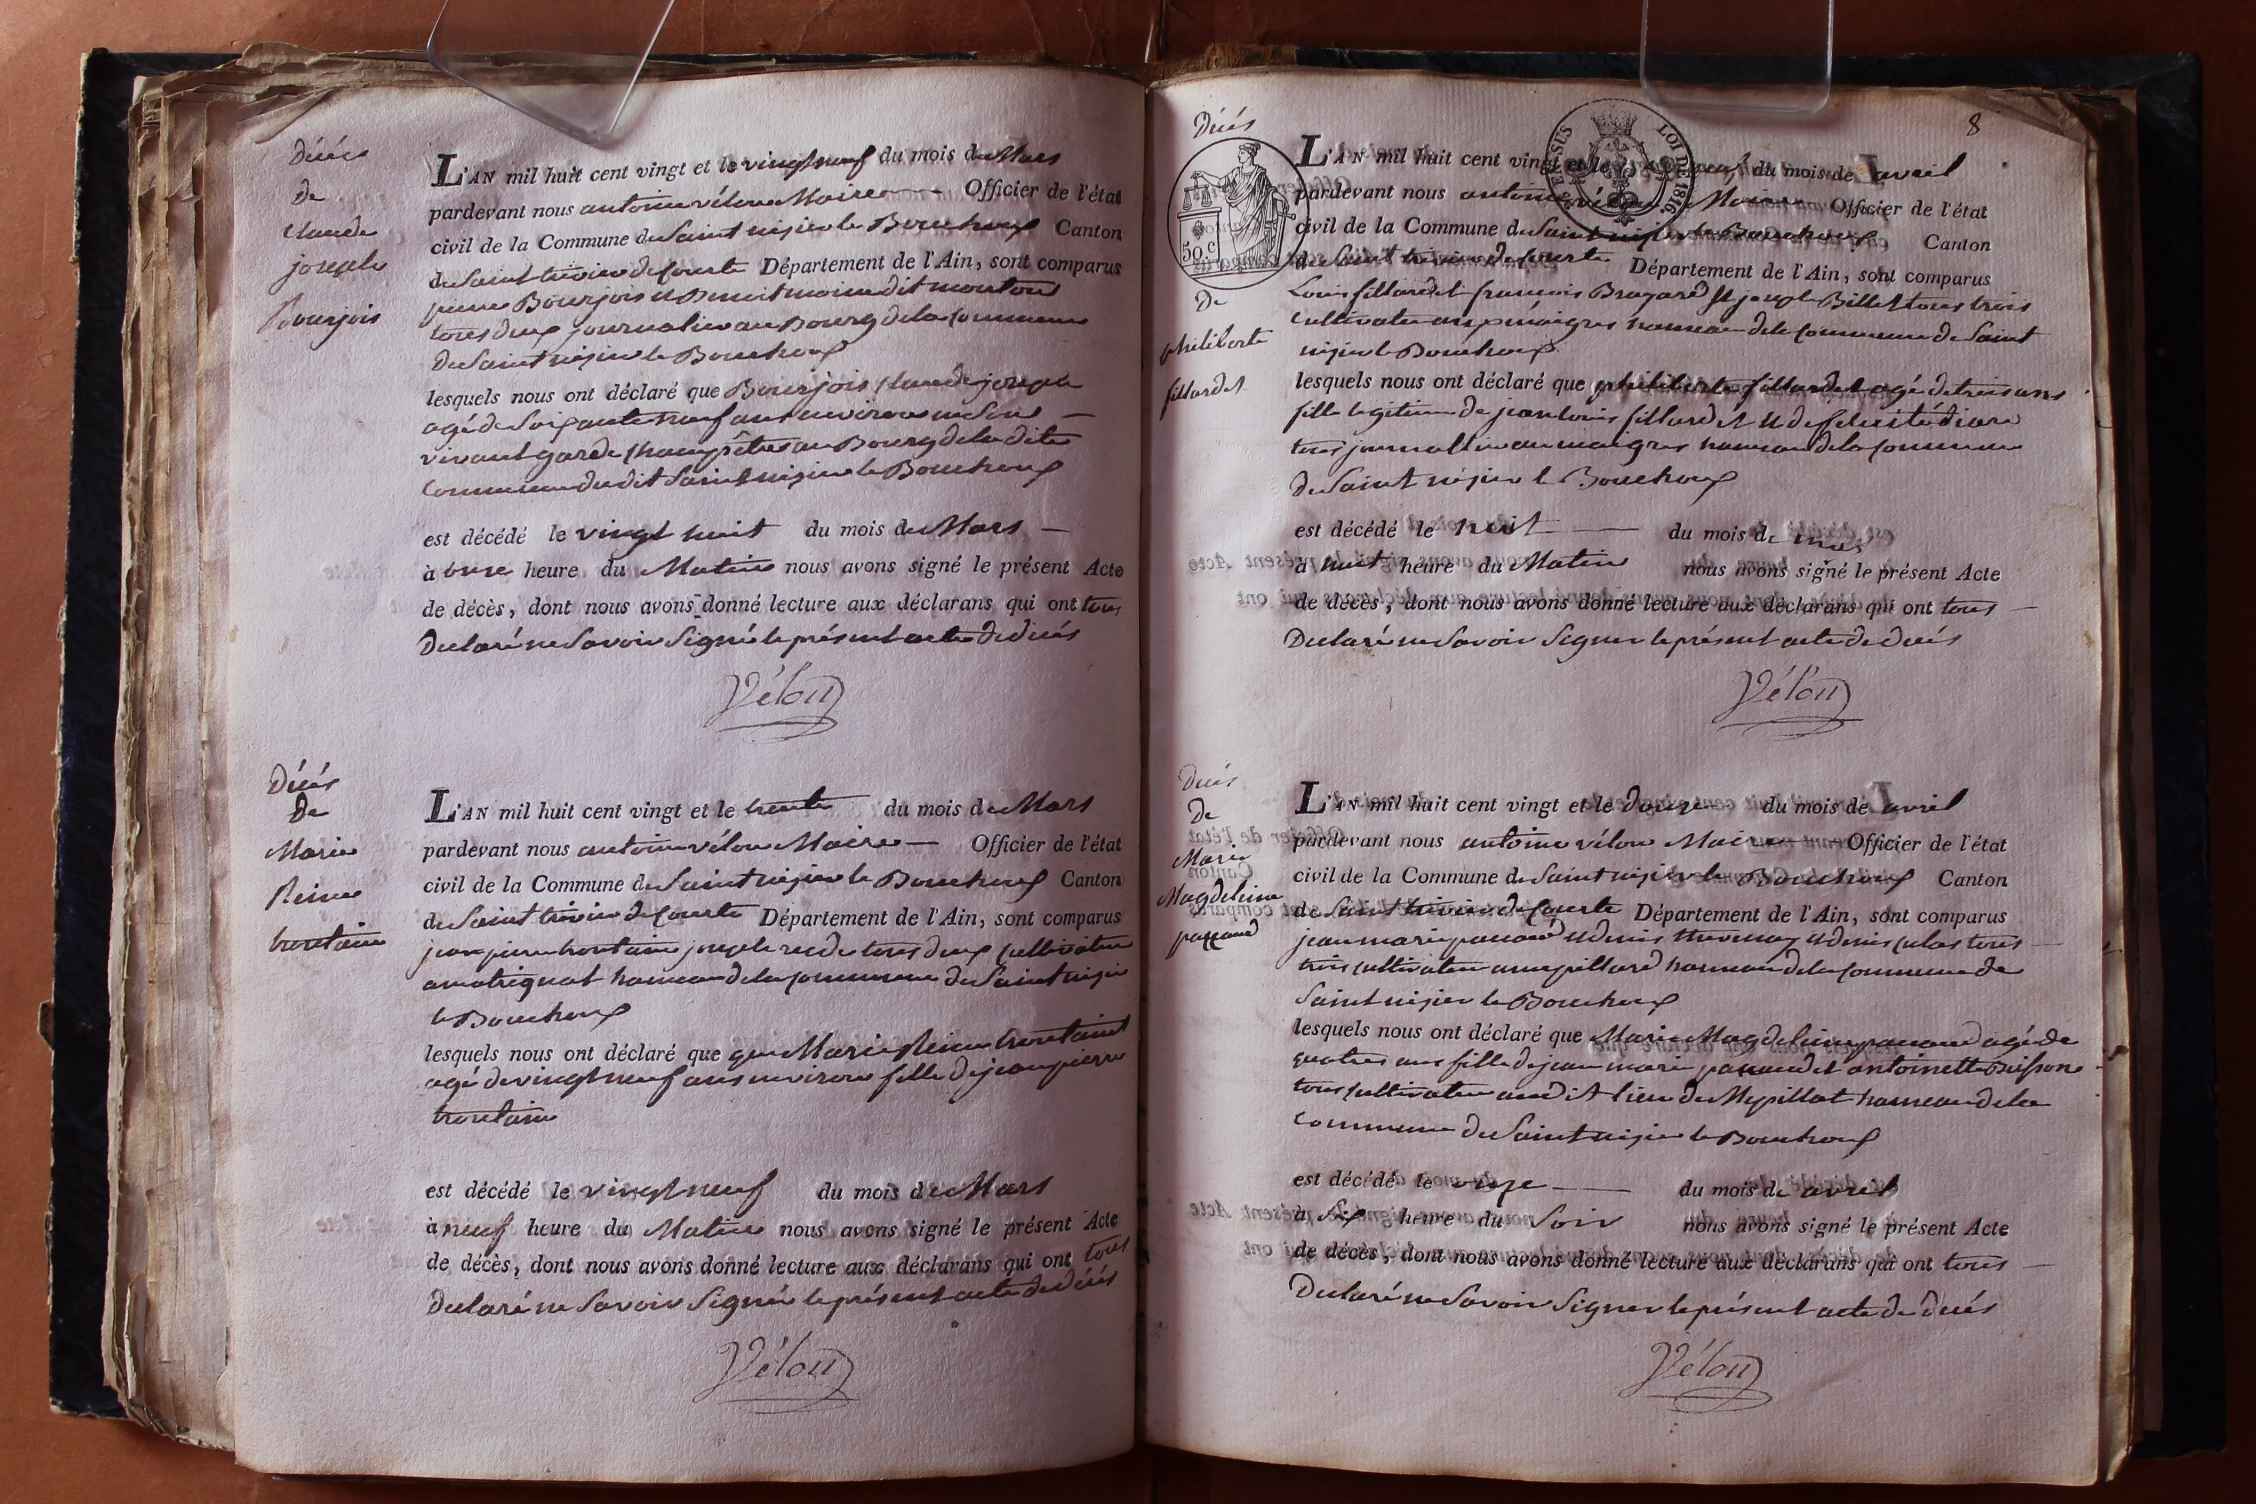 Décés
de
claude
joseph
Bourjois
L'AN mil huit cent vingt et le vingt neuf du mois de Mars
pardevant nous antoine vélon Maire Officier de l'état
civil de la Commune de Saint nizier le Bouchoux Canton
de Saint trivier de Courte Département de l'Ain, sont comparus
pierre Bourjois et Benoit moine dit mouton
tous deux journalier au Bourg de la Commune
de Saint nizier le Bouchoux
lesquels nous ont déclaré que Bourjois claude joseph
agé de Soixante neuf ans environ en Son
vivant garde champêtre au Bourg de la dite
Commune dudit Saint nizier le Bouchoux
est décédé le vingt huit du mois de Mars
à onze heure du Matin nous avons signé le présent Acte
de décès, dont nous avons donné lecture aux déclarans qui ont tous
Déclaré ne Savoir Signé le présent acte de décés
Vélon
Décés
de
Marie
Reine
trontaine
L'AN mil huit cent vingt et le trente du mois de Mars
pardevant nous antoine vélon Maire Officier de l'état
civil de la Commune de Saint nizier le Bouchoux Canton
de Saint trivier de Courte Département de l'Ain, sont comparus
jean pierre trontaine joseph rude tous deux Cultivateur
a matrignat hameau de la Commune de Saint nizier
le Bouchoux
lesquels nous ont déclaré que que Marie Reine trontaine
agé de vingt neuf ans environ fille de jean pierre
trontaine
est décédé le vingt neuf du mois de Mars
à neuf heure du Matin nous avons signé le présent Acte
de décès, dont nous avons donné lecture aux déclarans qui ont tous
Déclaré ne Savoir Signé le présent acte de décés
Vélon
8
Décés
de
philiberte
fillardet
50.c
LOI DE 1816.
L'AN mil huit cent vingt et le neuf du mois de avril
pardevant nous antoine vélon Maire Officier de l'état
civil de la Commune de Saint nizier le Bouchoux Canton
de Saint trivier de Courte Département de l'Ain, sont comparus
Louis fillardet françois Brazard et joseph Billet tous trois
Cultivateur hameau de la Commune de Saint
nizier le Bouchoux
lesquels nous ont déclaré que philiberte fillardet agé de trois ans
fille legitime de jean louis fillardet et de felicité diard
tous journallier au maigres hameau de la Commune
de Saint nizier le Bouchoux
est décédé le huit du mois de
à huit heure du Matin nous avons signé le présent Acte
de décès, dont nous avons donné lecture aux déclarans qui ont tous
Déclaré ne Savoir Signer le présent acte de décés
Vélon
Décés
de
Marie
Magdeleine
paccaud
L'AN mil huit cent vingt et le douze du mois de avril
pardevant nous antoine vélon Maire Officier de l'état
civil de la Commune de Saint nizier le Bouchoux Canton
de Saint trivier de Courte Département de l'Ain, sont comparus
jean marie paccaud et denis thevenay et denis culas tous
trois Cultivateur hameau de la Commune de
Saint nizier le Bouchoux
lesquels nous ont déclaré que Marie Magdeleine paccaud agé de
quatre ans fille de jean marie paccaud et antoinette Buisson
tous Cultivateur audit lieu de Mepillat hameau de la
Commune de Saint nizier le Bouchoux
est décédé le onze du mois de avril
à Six heure du Soir nous avons signé le présent Acte
de décès, dont nous avons donné lecture aux déclarans qui ont tous
Déclaré ne Savoir Signer le présent acte de décés
Vélon